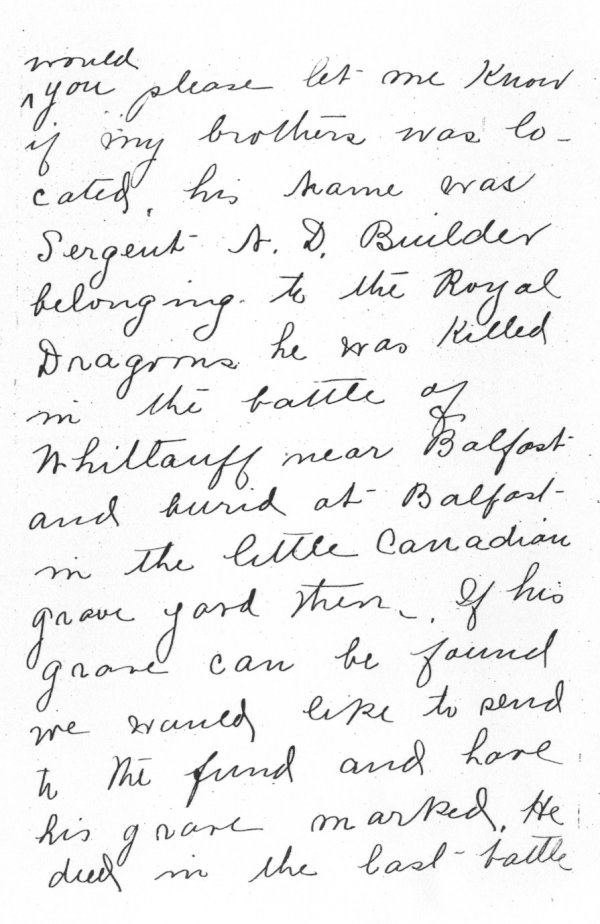 would
^you please let me know
if my brothers was lo-
cated, his name was
Sergent A. D. Builder
belonging to the Royal
Dragoons he was killed
in the battle of
Whittauff near Balfast
and burid at Balfast
in the little Canadian
grave yard then. If his
grave can be found
we would like to send
to the fund and have
his grave marked. He
died in the last battle